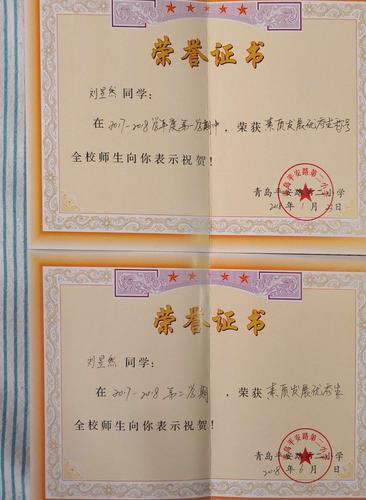 荣誉证书
刘昱然 同学：
在 2017-2018学年度第一学期中，荣获 素质发展优秀生称号
全校师生向你表示祝贺！
青岛平安路第二小学
2018 年 1 月 23 日
荣誉证书
刘昱然 同学：
在 2017-2018 第二学期，荣获 素质发展优秀生
全校师生向你表示祝贺！
青岛平安路第二小学
2018 年 6 月 日